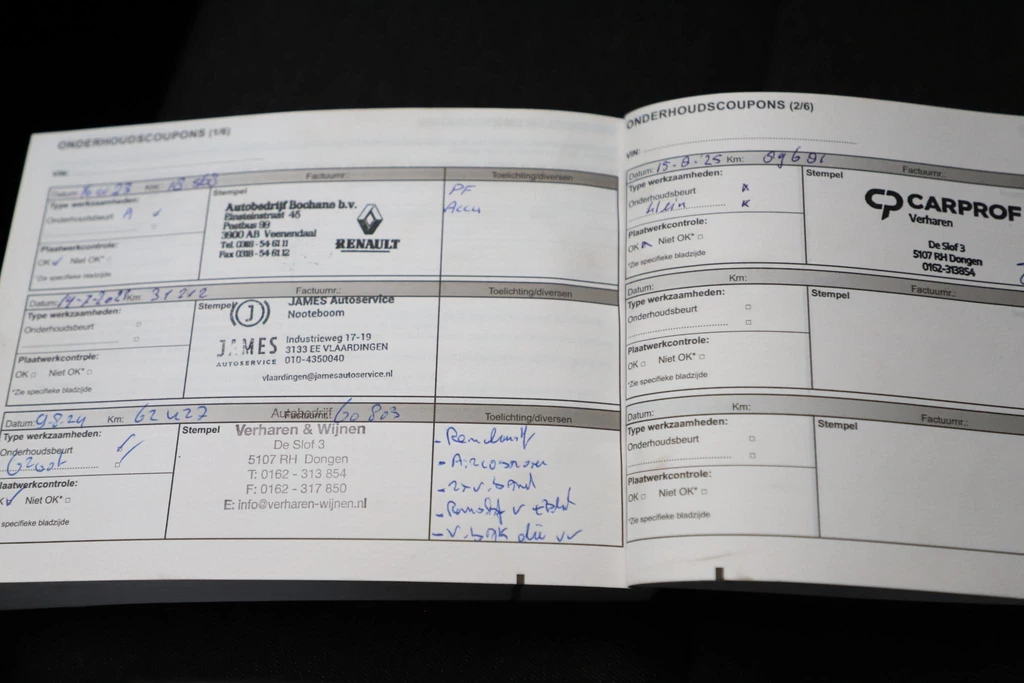 ONDERHOUDSCOUPONS (1/6)
VIN:
Datum: Km: Factuurnr.: Toelichting/diversen
Type werkzaamheden:
Onderhoudsbeurt A
Plaatwerkcontrole:
OK Niet OK*
*Zie specifieke bladzijde
Stempel
Autobedrijf Bochane b.v.
Einsteinstraat 45
Postbus 99
3900 AB Veenendaal
Tel. 0318 - 54 61 11
Fax 0318 - 54 61 12
RENAULT
PF
Accu
Datum: Km: 31212 Factuurnr.: Toelichting/diversen
Type werkzaamheden:
Onderhoudsbeurt
Plaatwerkcontrole:
OK Niet OK*
*Zie specifieke bladzijde
Stempel
J
JAMES
AUTOSERVICE
JAMES Autoservice
Nooteboom
Industrieweg 17-19
3133 EE VLAARDINGEN
010-4350040
vlaardingen@jamesautoservice.nl
Datum: 9.8.24 Km: 62427 Factuurnr.: Toelichting/diversen
Type werkzaamheden:
Onderhoudsbeurt
Groot
Plaatwerkcontrole:
Niet OK*
specifieke bladzijde
Stempel
Autobedrijf
Verharen & Wijnen
De Slof 3
5107 RH Dongen
T: 0162 - 313 854
F: 0162 - 317 850
E: info@verharen-wijnen.nl
ONDERHOUDSCOUPONS (2/6)
VIN:
Datum: 15-8-25 Km: Factuurnr.:
Type werkzaamheden:
Onderhoudsbeurt
klein
Plaatwerkcontrole:
OK Niet OK*
*Zie specifieke bladzijde
Stempel
CP CARPROF
Verharen
De Slof 3
5107 RH Dongen
0162-313854
Datum: Km: Factuurnr.:
Type werkzaamheden:
Onderhoudsbeurt
Plaatwerkcontrole:
OK Niet OK*
*Zie specifieke bladzijde
Stempel
Datum: Km: Factuurnr.:
Type werkzaamheden:
Onderhoudsbeurt
Plaatwerkcontrole:
OK Niet OK*
*Zie specifieke bladzijde
Stempel